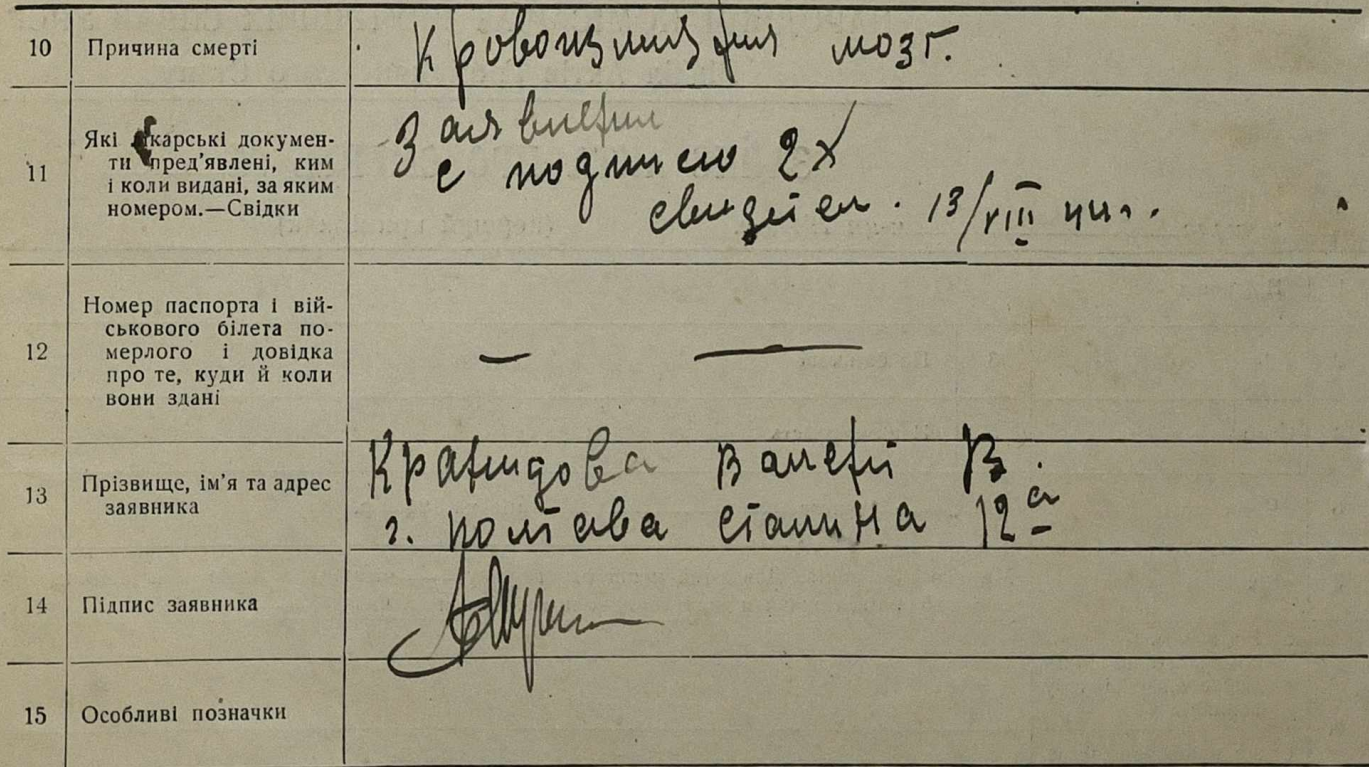 10 Причина смерті Кровоизлияния мозг.
11 Які лікарські докумен-
ти пред'явлені, ким
і коли видані, за яким
номером.—Свідки
Заявления
с подписю 2х
свидетел. 13/VIII 44г.
12 Номер паспорта і вій-
ськового білета по-
мерлого і довідка
про те, куди й коли
вони здані
— —
13 Прізвище, ім'я та адрес
заявника
В.
г. Полтава Сталина 12а
14 Підпис заявника
15 Особливі позначки